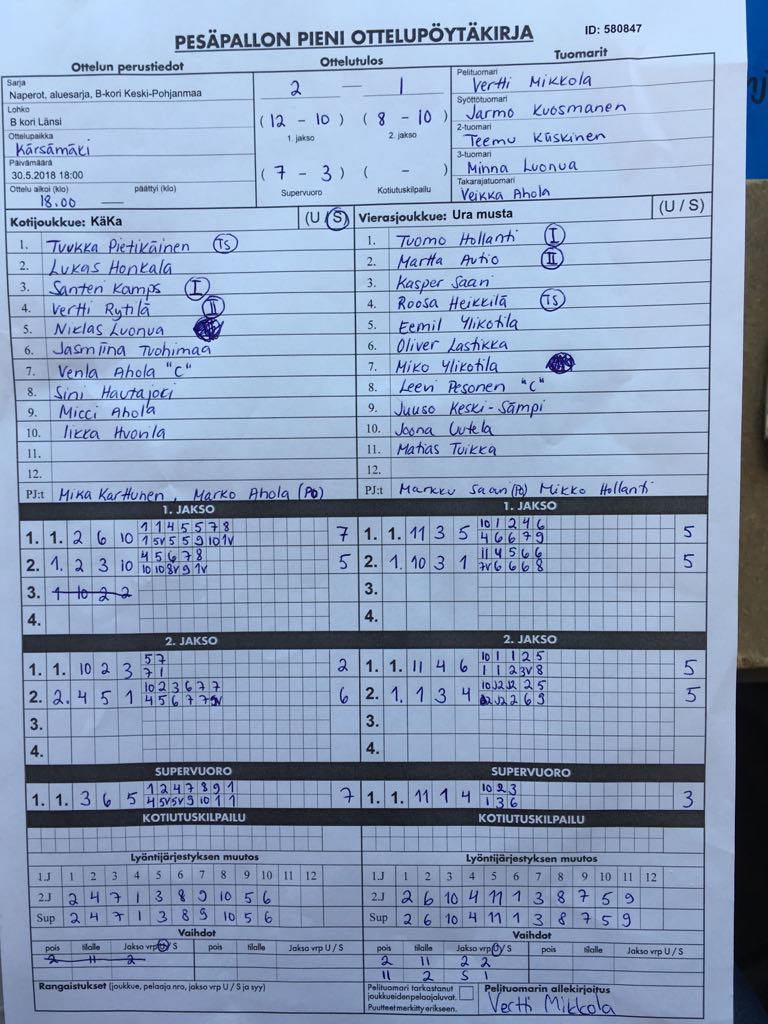 PESÄPALLON PIENI OTTELUPÖYTÄKIRJA
ID: 580847
Ottelun perustiedot
Ottelutulos
Tuomarit
Sarja
Naperot, aluesarja, B-kori Keski-Pohjanmaa
Lohko
B kori Länsi
Ottelupaikka
Kärsämäki
Päivämäärä
30.5.2018 18:00
Ottelu alkoi (klo) päättyi (klo)
18.00 —
2 — 1
(12 - 10) (8 - 10)
1. jakso 2. jakso
(7 - 3) ( - )
Supervuoro Kotiutuskilpailu
Pelituomari
Vertti Mikkola
Syöttötuomari
Jarmo Kuosmanen
2-tuomari
Teemu Kiiskinen
3-tuomari
Minna Luonua
Takarajatuomari
Veikka Ahola
Kotijoukkue: KäKa (U / S)
1. Tuukka Pietikäinen TS
2. Lukas Honkala
3. Santeri Kamps I
4. Vertti Rytilä II
5. Niklas Luonua
6. Jasmiina Tuohimaa
7. Venla Ahola "C"
8. Sini Hautajoki
9. Micci Ahola
10. Iikka Huovila
11.
12.
PJ:t Mika Karttunen, Marko Ahola (PO)
Vierasjoukkue: Ura musta (U / S)
1. Tuomo Hollanti I
2. Martta Autio II
3. Kasper Saari
4. Roosa Heikkilä TS
5. Eemil Ylikotila
6. Oliver Lastikka
7. Miko Ylikotila
8. Leevi Pesonen "C"
9. Juuso Keski-Sämpi
10. Joona Uutela
11. Matias Tuikka
12.
PJ:t Markku Saari (PO) Mikko Hollanti
1. JAKSO
1. 1. 2 6 10 1 1 4 5 5 7 8 7
1 5V 5 5 9 10 1V
2. 1. 2 3 10 4 5 6 7 8 5
10 10 8V 9 1V
3. 1 10 2 2
4.
1. JAKSO
1. 1. 11 3 5 10 1 2 4 6 5
4 6 6 7 9
2. 1. 10 3 1 11 4 5 6 6 5
7V 6 6 6 8
3.
4.
2. JAKSO
1. 1. 10 2 3 5 7 2
7 1
2. 2. 4 5 1 10 2 3 6 7 7 6
4 5 6 7 7
3.
4.
2. JAKSO
1. 1. 11 4 6 10 1 1 2 5 5
1 1 2 3V 8
2. 1. 1 3 4 10 J2 J2 2 5 5
J2 2 6 9
3.
4.
SUPERVUORO
1. 1. 3 6 5 1 2 4 7 8 9 1 7
4 5V 5V 9 10 1 1
SUPERVUORO
1. 1. 11 1 4 10 2 3 3
1 3 6
KOTIUTUSKILPAILU
KOTIUTUSKILPAILU
Lyöntijärjestyksen muutos
1.J 1 2 3 4 5 6 7 8 9 10 11 12
2.J 2 4 7 1 3 8 9 10 5 6
Sup 2 4 7 1 3 8 9 10 5 6
Lyöntijärjestyksen muutos
1.J 1 2 3 4 5 6 7 8 9 10 11 12
2.J 2 6 10 4 11 1 3 8 7 5 9
Sup 2 6 10 4 11 1 3 8 7 5 9
Vaihdot
pois tilalle Jakso vrp U / S pois tilalle Jakso vrp U / S
2 11 2
Vaihdot
pois tilalle Jakso vrp U / S pois tilalle Jakso vrp U / S
2 11 2 2
11 2 S 1
Rangaistukset (joukkue, pelaaja nro, jakso vrp U / S ja syy)
Pelituomari tarkastanut
joukkueiden pelaajaluvat.
Puutteet merkitty erikseen.
Pelituomarin allekirjoitus
Vertti Mikkola